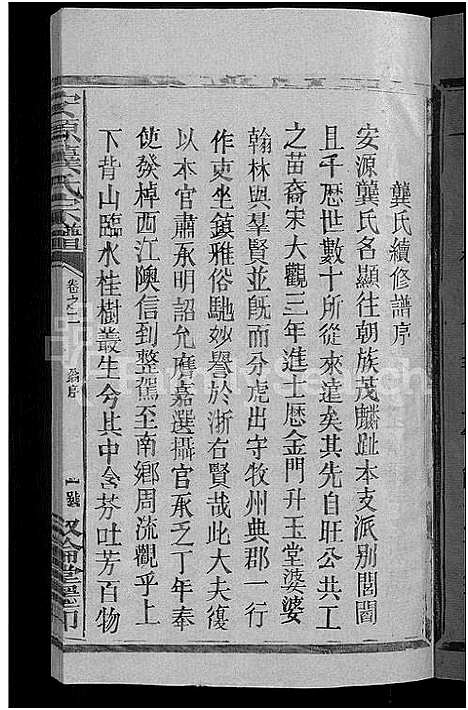 龔氏續修譜序
安源龔氏名顯往朝族茂麟趾本支派別閥閱
且千歷世數十所從來遠矣其先自旺公共工
之苗裔宋大觀三年進士歷金門升玉堂婆娑
翰林與羣賢並既而分虎出守牧州典郡一行
作吏坐鎮雅俗馳妙譽於浙右賢哉此大夫復
以本官肅承明詔允膺嘉選攝官承乏丁年奉
使發棹西江隩信到整駕至南鄉周流觀乎上
下背山臨水桂樹叢生兮其中含芬吐芳百物
安源龔氏宗譜
卷之二
序